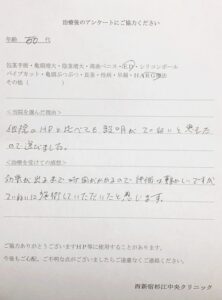 治療後のアンケートにご協力ください
年齢
包茎手術・亀頭増大・陰茎増大・長茎・ED・シリコンボール
パイプカット・亀頭ぶつぶつ・性病・早漏・HARG療法
その他（　　　）
<当院を選んだ理由>
他院のHPと比べても説明がていねいと思えた
ので選びました。
<治療を受けての感想>
効果が出るまで時間がかかるので評価は難しいですが
ていねいに施術していただいたと感じます。
ご協力ありがとうございますHP等に使用することがあります。
今後もご心配、ご不明な点がございましたらご遠慮なくご連絡ください。
西新宿杉江中央クリニック